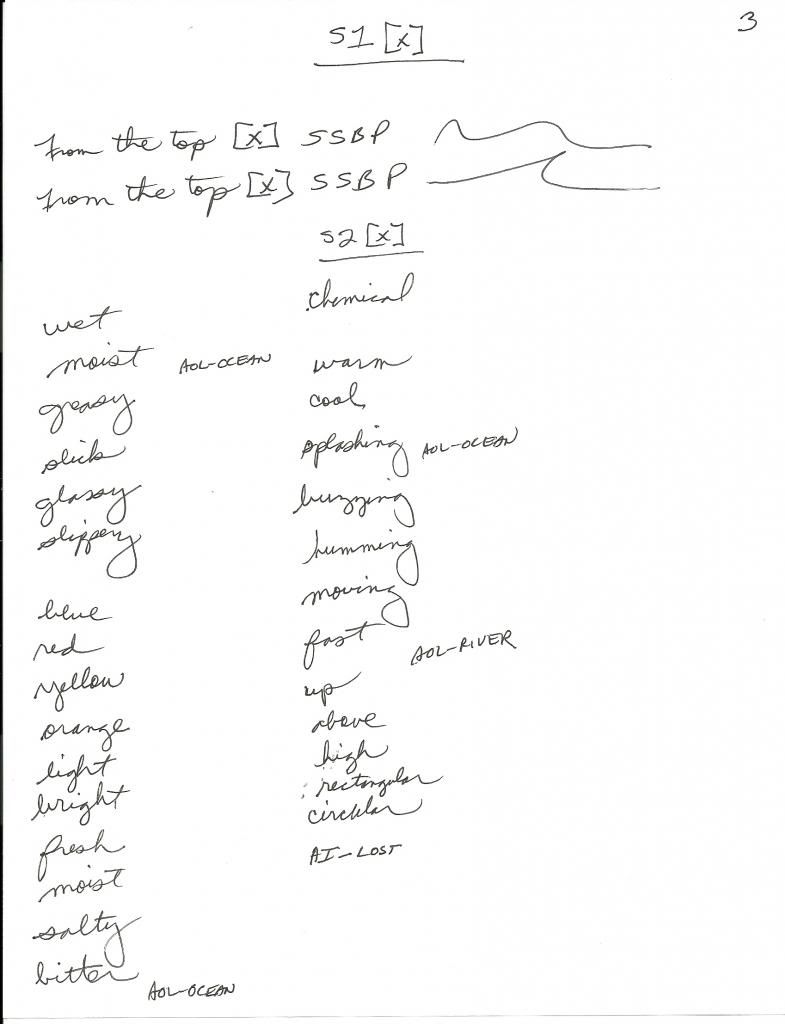 3
S1 [x]
From the top [x] SSBP
From the top [x] SSBP
S2 [x]
wet
moist AOL-OCEAN
greasy
slick
glassy
slippery
blue
red
yellow
orange
light
bright
fresh
moist
salty
bitter AOL-OCEAN
chemical
warm
cool
splashing AOL-OCEAN
buzzing
humming
moving
fast AOL-RIVER
up
above
high
rectangular
circular
AI-LOST